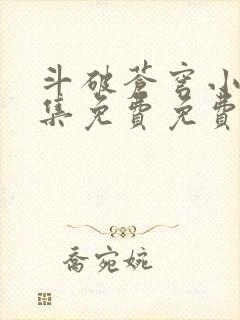 斗破苍穹小
集免费免费
乔宛婉